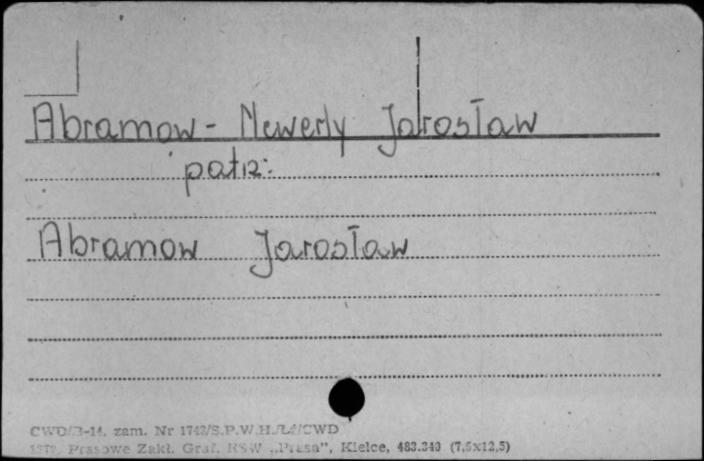 Abramow-Newerly Jarosław
patrz:
Abramow Jarosław
CWD/B-14, zam. Nr 1742/S.P.W.H./Ł/CWD
Prasowe Zakł. Graf. RSW „Prasa", Kielce, 483.340 (7,5x12,5)